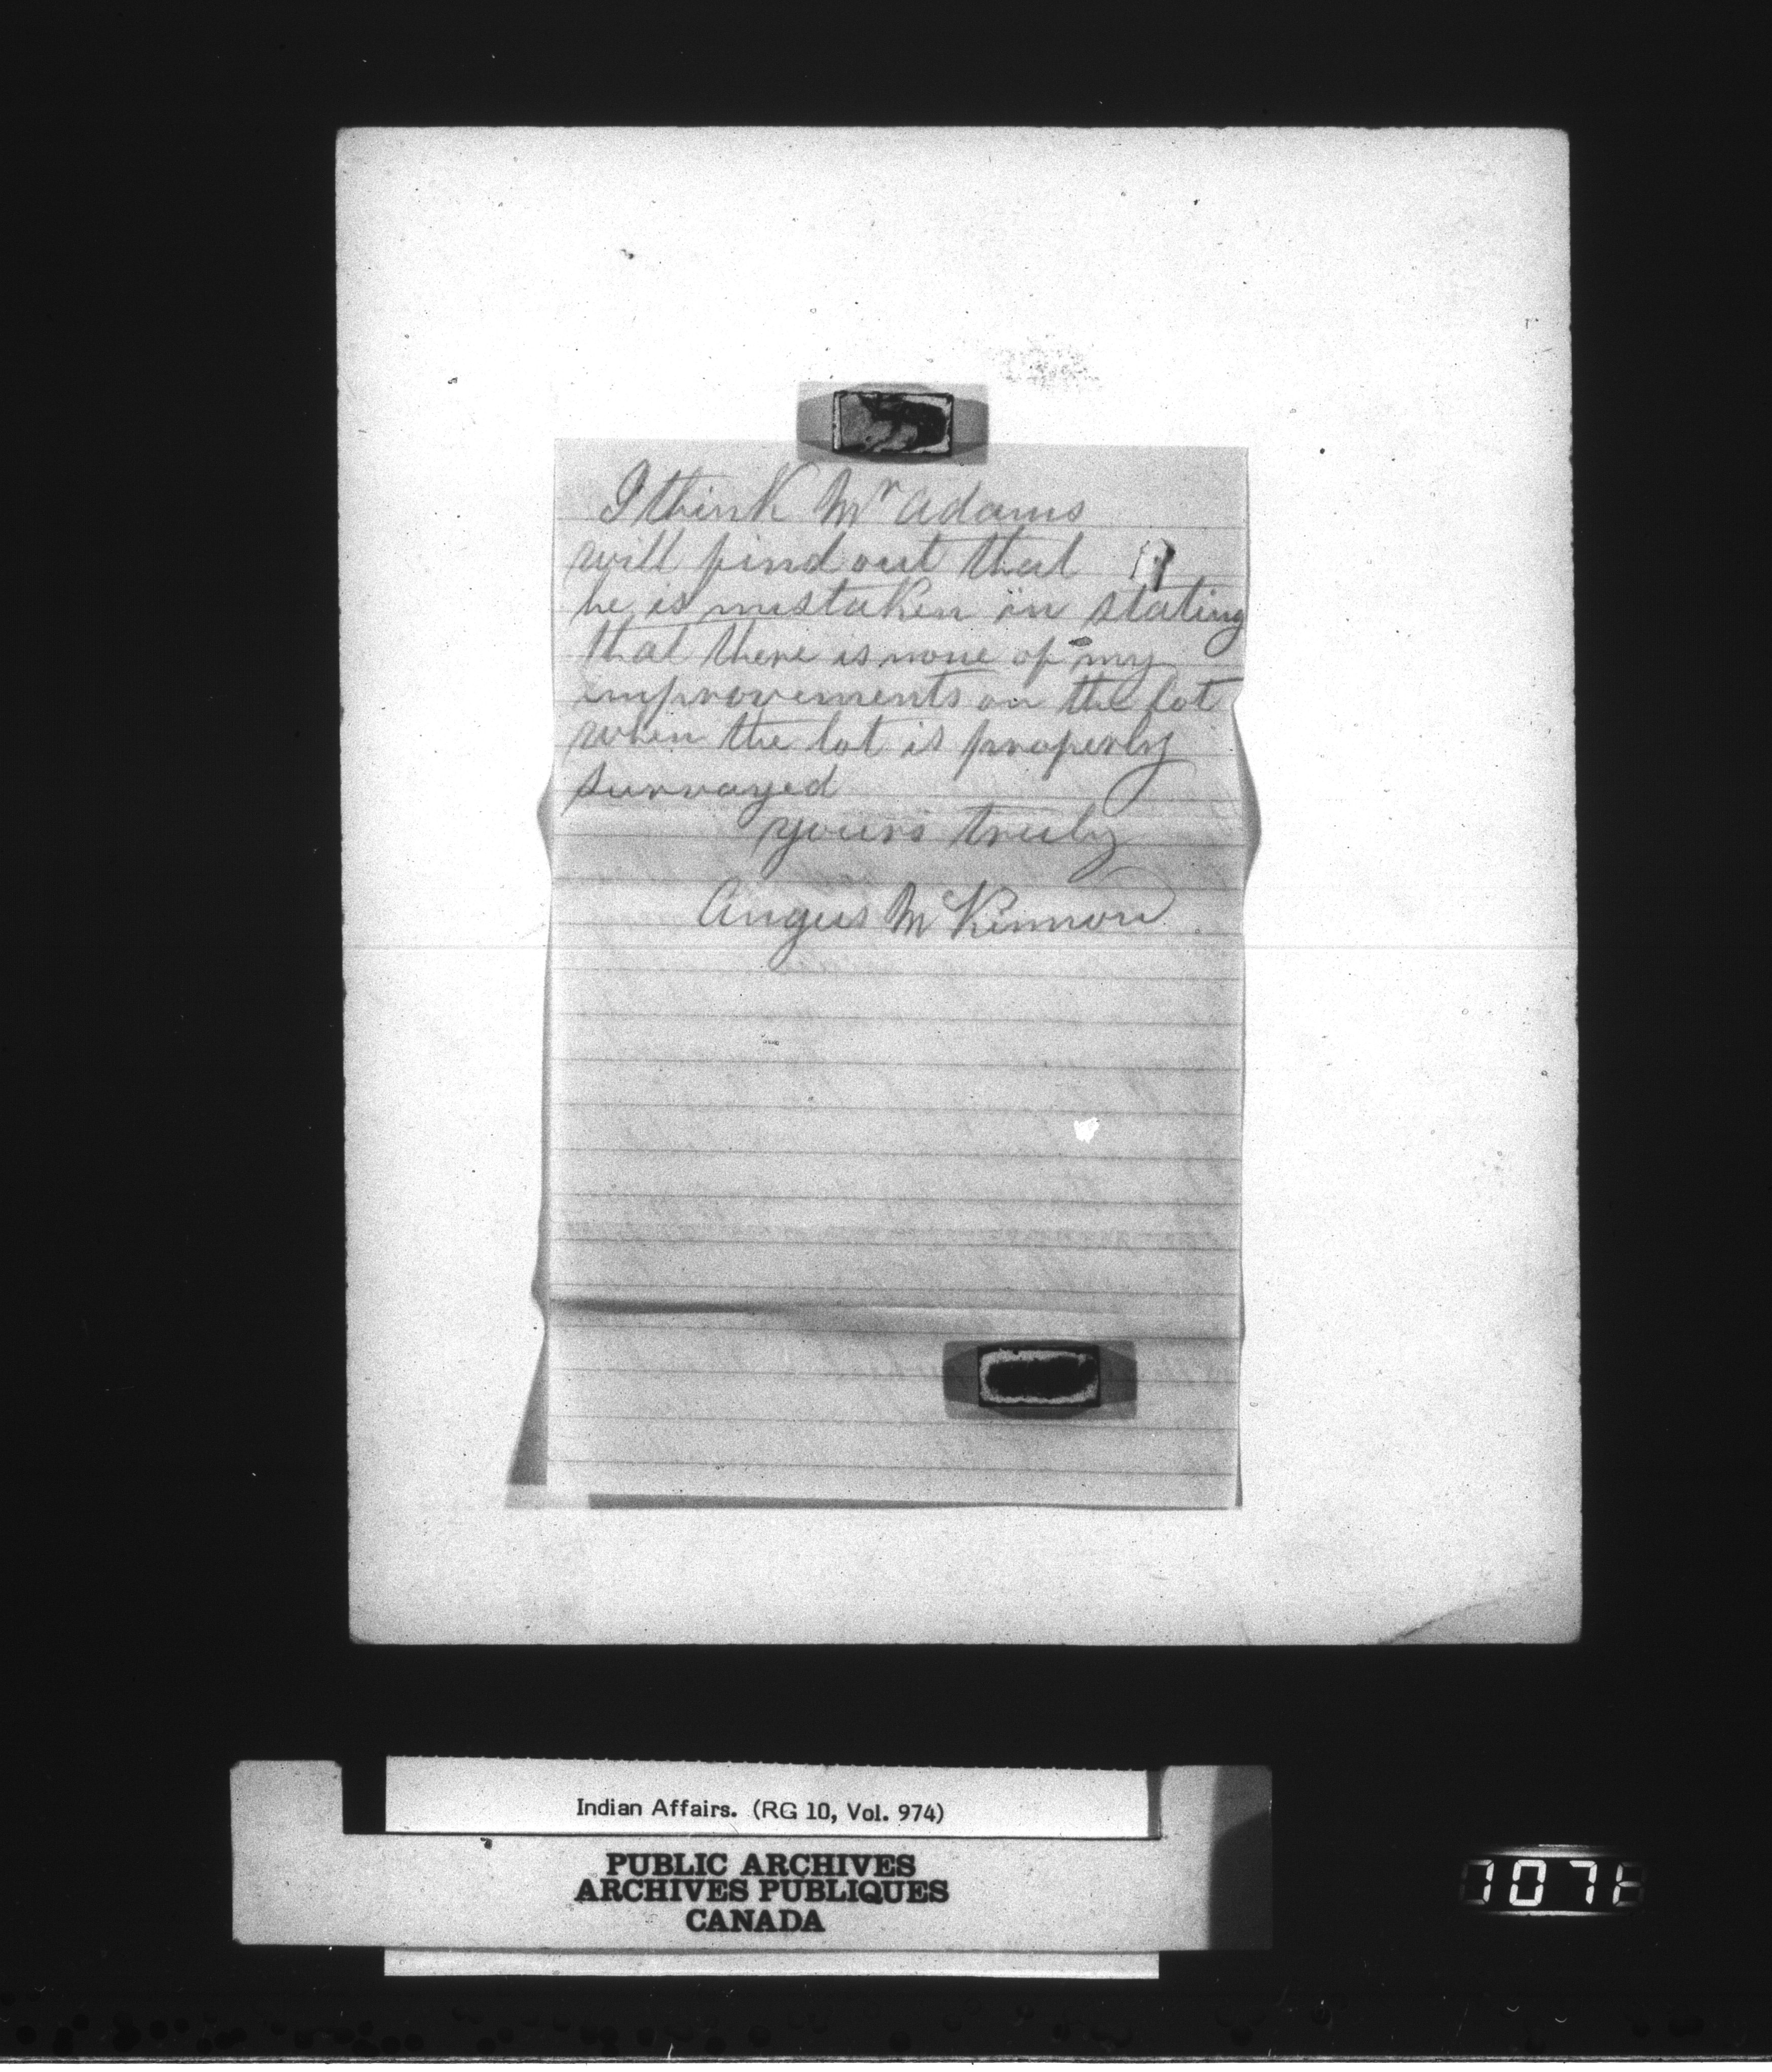 I think Mr Adams
will find out that
he is mistaken in stating
that there is none of my
improvements on the lot
when the lot is properly
survayed
yours truly
Angus McKinnon
Indian Affairs. (RG 10, Vol. 974)
PUBLIC ARCHIVES
ARCHIVES PUBLIQUES
CANADA